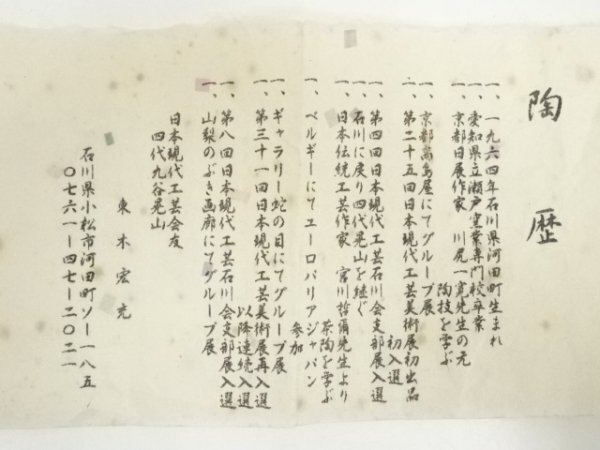 陶歴
一、一九六四年石川県河田町生まれ
一、愛知県立瀬戸窯業専門校卒業
一、京都日展作家 川尻一寛先生の元
陶技を学ぶ
一、京都高島屋にてグループ展
一、第二十五回日本現代工芸美術展初出品
初入選
一、第四回日本現代工芸石川会支部展入選
一、石川に戻り四代晃山を継ぐ
一、日本伝統工芸作家 宮川哲爾先生より
茶陶を学ぶ
一、ベルギーにてユーロパリアジャパン
参加
一、ギャラリー蛇の目にてグループ展
一、第三十一回日本現代工芸美術展再入選
以降連続入選
一、第八回日本現代工芸石川会支部展入選
一、山梨のぶき画廊にてグループ展
日本現代工芸会会友
四代九谷晃山
東木宏充
石川県小松市河田町ソー一八五
〇七六一ー四七ー二〇二一